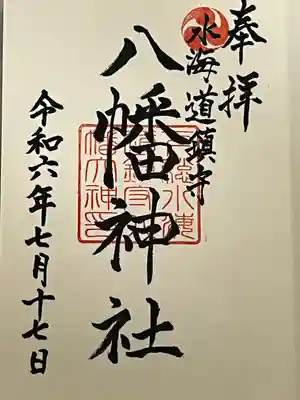 奉拝
水海道鎮守
八幡神社
令和六年七月十七日